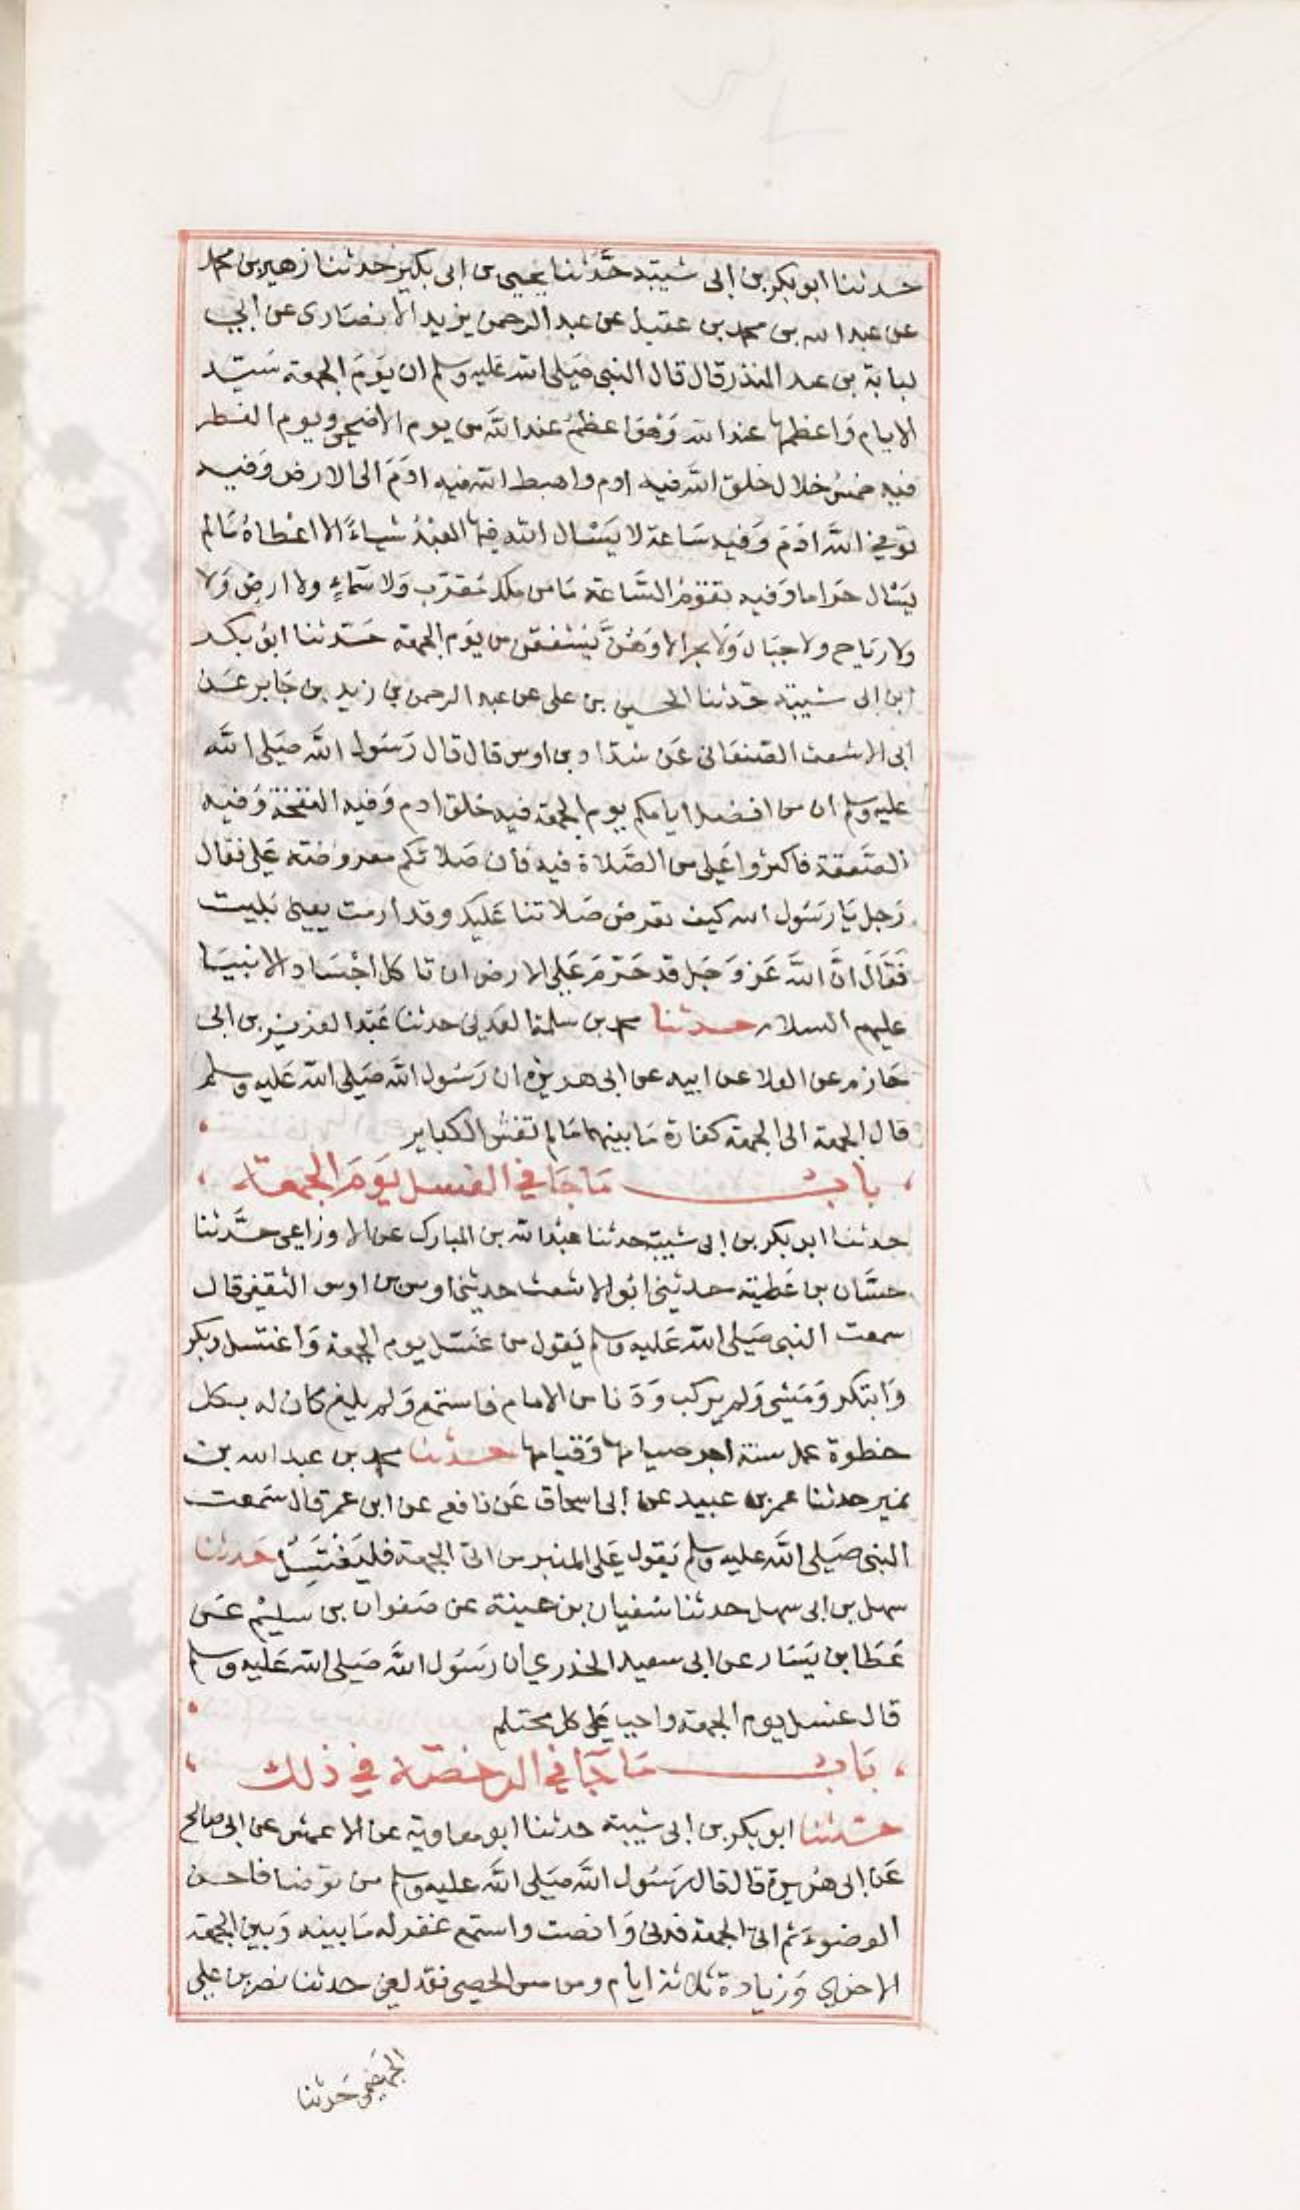 حدثنا ابو بكر بن ابى شيبة حدَّثنا يحيى بن ابى بكير حدثنا زهير بن محمد
عن عبد الله بن محمد بن عقيل عن عبد الرحمن يزيد الانصَارى عن ابي
لبابة بن عبد المنذر قال قال النبي صَلى الله عَليه وسلم ان يَومَ الجمعة سَيّد
الايام وَاعظمها عند الله وَهوَ اعظمُ عند اللَّه من يوم الاضحى ويوم الفطر
فيه خمسُ خلال خلق اللَّه فيه ادم واهبط الله فيه ادَمَ الى الارض وَفيه
توفي اللَّه ادَمَ وَفيه سَاعة لا يَسْال الله فيها العَبْدُ شياءً الا اعْطاهُ مَالم
يَسْال حَراما وَفيه تقوْمُ السَّاعة مَا من ملك مُقرّب وَلا سَماءٍ ولا ارضٍ وَلا
ولا ريَاح ولا جبَال وَلا بحر الا وَهُنَّ يَشفقن من يَوم الجمعة حَدّثنا ابوُ بكر
ابن ابى شيبة حَدثنا الحسين بن على عن عبد الرحمن بن زيد بن جَابر عَن
ابى الاشعث الصَنعَانى عَن شدّاد بن اوس قال قال رَسَول اللَّه صَلى اللَّه
عليه وسلم ان من افضل ايامكم يوم الجمعة فيه خلق ادم وَفيه النفخة وَفيه
الصَعقة فاكثروا عَلي من الصَّلاة فيه فان صَلاتكم معروضة عَلى فقال
رَجل يَا رَسَول الله كيف تعرض صَلاتنا عَليك وقد ارمت يعني بَليت
فَقَالَ انَّ اللَّه عَز وَجَل قد حَرّمَ عَلى الارض ان تاكل اجْسَاد الانبيَا
عليهم السلام حدثنا محمد بن سلمة العدني حدثنا عَبْد العزيز بن ابى
حَازم عن العلا عن ابيه عن ابى هريرة ان رَسُول اللَّه صَلى اللَّه عَليه وسلم
قال الجمعة الى الجمعة كفارة مَا بينهما مَا لم تغش الكباير
بابُ مَا جَا في الغسل يَومَ الجمعة
حدثنا ابو بكر بن ابى شيبة حدثنا عَبْد الله بن المبارك عن الاوزاعي حدَّثنا
حسَّان بن عَطية حدثني ابوُ الاشعث حدثني اوس بن اوس الثقفي قال
سمعت النبى صَلى اللَّه عَليه وسلم يَقول من غَسَل يوم الجمعة وَاغتسل وبكر
وَابتكر وَمَشى وَلم يركب وَدَنا من الامام فاستمع وَلم يلغ كان له بكل
خطوة عمل سنة اجر صيامها وَقيامها حدثنا محمد بن عبد الله بن
نمير حدثنا عمر بن عبيد عن ابى اسحاق عَن نافع عن ابن عمر قال سَمعت
النبى صَلى اللَّه عليه وسلم يَقول عَلى المنبر من اتى الجمعة فليَغْتَسِلْ حَدثنا
سهل بن ابى سهل حدثنا سُفيان بن عينة عن صَفوان بن سليْم عَن
عَطا بن يَسَار عن ابى سعيد الخدري ان رَسُول اللَّه صَلى اللَّه عَليه وسلم
قال غسل يوم الجمعة واجب عَلى كل محتلم
بَابُ مَا جَا في الرخصَة في ذلك
حدثنا ابو بكر بن ابى شيبة حدثنا ابو معاوية عن الاعمش عن ابى صالح
عَن ابى هُريرة قال قال رَسُول اللَّه صَلى اللَّه عليه وسلم من توضا فاحسن
الوضوءَ ثم اتى الجمعة فدنى وَانصت واستمع غفر له مَا بينه وَبين الجمعة
الاخرى وَزيادة ثلاثة ايام ومن مس الحصى فقد لغى حدثنا نصر بن علي
الجهضمي حَدثنا